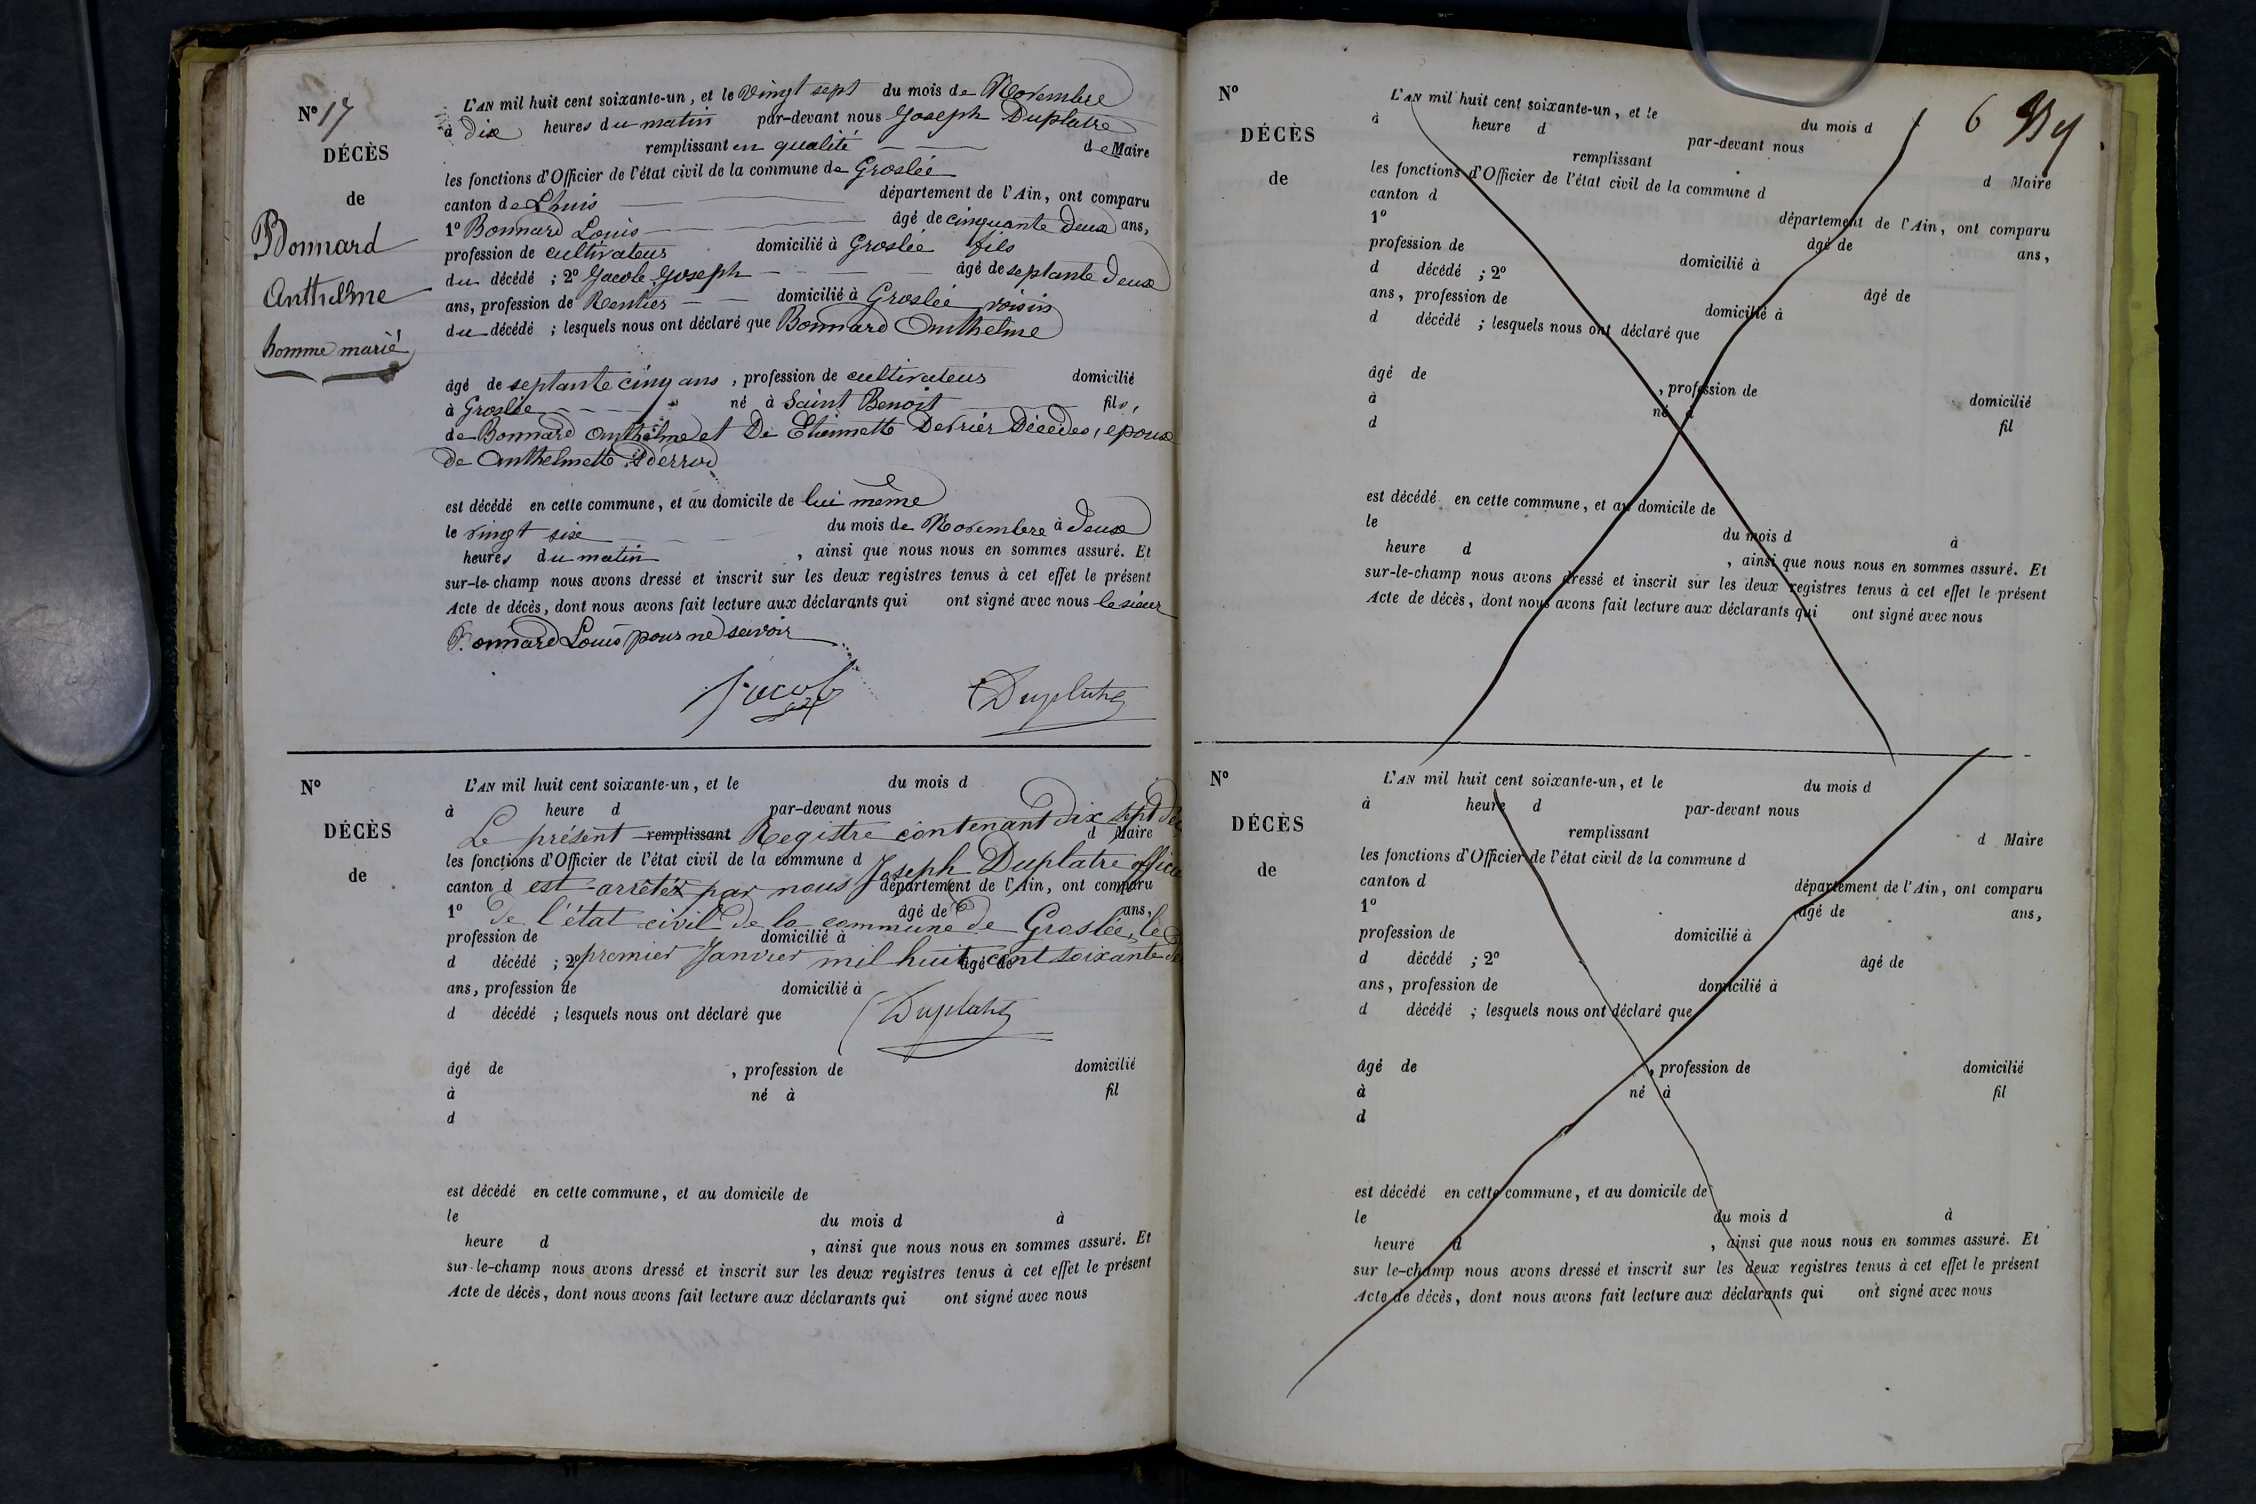 N° 17
DÉCÈS
de
Bonnard
Anthelme
homme marié
L'AN mil huit cent soixante-un, et le vingt sept du mois de Novembre
à dix heures du matin par-devant nous Joseph Duplatre
remplissant en qualité de Maire
les fonctions d'Officier de l'état civil de la commune de Groslée
canton de Lhuis département de l'Ain, ont comparu
1° Bonnard Louis âgé de cinquante deux ans,
profession de cultivateur domicilié à Groslée fils
du décédé ; 2° Jacob Joseph âgé de septante deux
ans, profession de Rentier domicilié à Groslée voisin
du décédé ; lesquels nous ont déclaré que Bonnard Anthelme
âgé de septante cinq ans, profession de cultivateur domicilié
à Groslée né à Saint Benoit fils,
de Bonnard Anthelme et De Etiennette Décédés, epoux
De Anthelmette
est décédé en cette commune, et au domicile de lui même
le vingt six du mois de Novembre à deux
heures du matin, ainsi que nous nous en sommes assuré. Et
sur-le-champ nous avons dressé et inscrit sur les deux registres tenus à cet effet le présent
Acte de décès, dont nous avons fait lecture aux déclarants qui ont signé avec nous le sieur
Bonnard Louis pour ne savoir
Jacob Duplatre
N°
DÉCÈS
de
L'AN mil huit cent soixante-un, et le du mois d
à heure d par-devant nous
Le présent remplissant Registre contenant dix sept
d Maire
les fonctions d'Officier de l'état civil de la commune d
est arrêté par nous Joseph Duplatre
canton d département de l'Ain, ont comparu
1° âgé de ans,
De l'état civil De la commune de Groslée, le
profession de domicilié à
premier Janvier mil huit cent soixante
d décédé ; 2° âgé de
ans, profession de domicilié à
d décédé ; lesquels nous ont déclaré que
Duplatre
âgé de , profession de domicilié
à né à fil
d
est décédé en cette commune, et au domicile de
le du mois d à
heure d , ainsi que nous nous en sommes assuré. Et
sur-le-champ nous avons dressé et inscrit sur les deux registres tenus à cet effet le présent
Acte de décès, dont nous avons fait lecture aux déclarants qui ont signé avec nous
6
N°
DÉCÈS
de
L'AN mil huit cent soixante-un, et le du mois d
à heure d par-devant nous
remplissant d Maire
les fonctions d'Officier de l'état civil de la commune d
canton d département de l'Ain, ont comparu
1° âgé de ans,
profession de domicilié à
d décédé ; 2° âgé de
ans, profession de domicilié à
d décédé ; lesquels nous ont déclaré que
âgé de , profession de domicilié
à né à fil
d
est décédé en cette commune, et au domicile de
le du mois d à
heure d , ainsi que nous nous en sommes assuré. Et
sur-le-champ nous avons dressé et inscrit sur les deux registres tenus à cet effet le présent
Acte de décès, dont nous avons fait lecture aux déclarants qui ont signé avec nous
N°
DÉCÈS
de
L'AN mil huit cent soixante-un, et le du mois d
à heure d par-devant nous
remplissant d Maire
les fonctions d'Officier de l'état civil de la commune d
canton d département de l'Ain, ont comparu
1° âgé de ans,
profession de domicilié à
d décédé ; 2° âgé de
ans, profession de domicilié à
d décédé ; lesquels nous ont déclaré que
âgé de , profession de domicilié
à né à fil
d
est décédé en cette commune, et au domicile de
le du mois d à
heure d , ainsi que nous nous en sommes assuré. Et
sur le-champ nous avons dressé et inscrit sur les deux registres tenus à cet effet le présent
Acte de décès, dont nous avons fait lecture aux déclarants qui ont signé avec nous